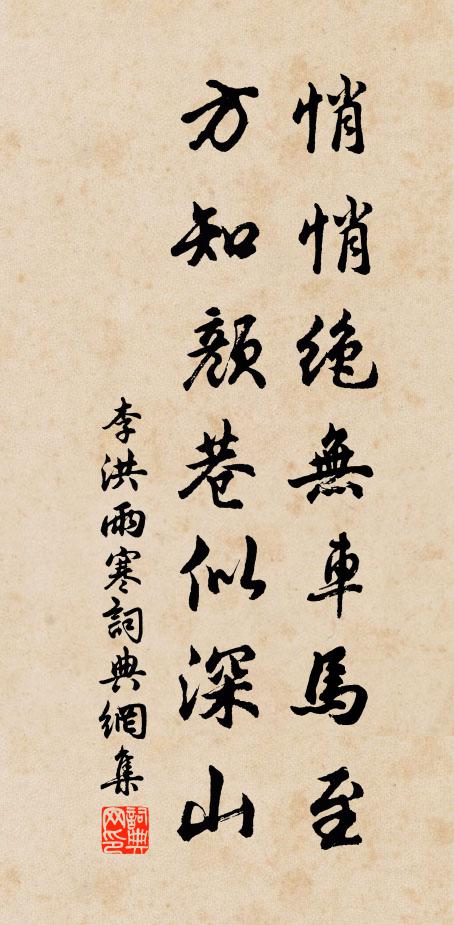 悄悄絶無車馬至
方知顔巷似深山
李洪雨寒詞典網集
詞典網印